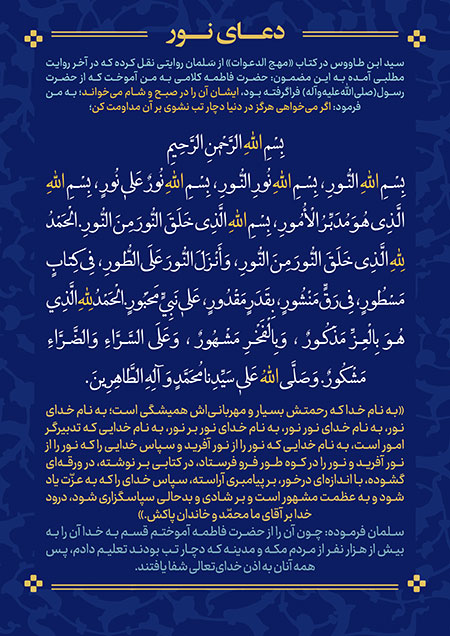 دعـــای نـــور
سید ابن طاووس در کتاب «مهج الدعوات» از سلمان روایتی نقل کرده که در آخر روایت
مطلبی آمده به این مضمون: حضرت فاطمه کلامی به من آموخت که از حضرت
رسول(صلی‌الله‌علیه‌وآله) فراگرفته بود، ایشان آن را در صبح و شام می‌خواند؛ به من
فرمود: اگر می‌خواهی هرگز در دنیا دچار تب نشوی بر آن مداومت کن:
بِسْمِ اللهِ الرَّحْمٰنِ الرَّحِيمِ
بِسْمِ اللهِ النُّورِ، بِسْمِ اللهِ نُورِ النُّورِ، بِسْمِ اللهِ نُورٌ عَلىٰ نُورٍ، بِسْمِ اللهِ
الَّذِى هُوَ مُدَبِّرُ الْأُمُورِ، بِسْمِ اللهِ الَّذِى خَلَقَ النُّورَ مِنَ النُّورِ. الْحَمْدُ
لِلهِ الَّذِى خَلَقَ النُّورَ مِنَ النُّورِ، وَأَنْزَلَ النُّورَ عَلَى الطُّورِ، فِى كِتابٍ
مَسْطُورٍ، فِى رَقٍّ مَنْشُورٍ، بِقَدَرٍ مَقْدُورٍ، عَلىٰ نَبِيٍّ مَحْبُورٍ. الْحَمْدُ لِلهِ الَّذِي
هُوَ بِالْعِزِّ مَذْكُورٌ ، وَبِالْفَخْرِ مَشْهُورٌ ، وَعَلَى السَّرَّاءِ وَالضَّرَّاءِ
مَشْكُورٌ. وَصَلَّى اللهُ عَلىٰ سَيِّدِنا مُحَمَّدٍ وَآلِهِ الطَّاهِرِينَ.
«به نام خدا که رحمتش بسیار و مهربانی‌اش همیشگی است؛ به نام خدای
نور، به نام خدای نور نور، به نام خدای نور بر نور، به نام خدایی که تدبیرگر
امور است، به نام خدایی که نور را از نور آفرید و سپاس خدایی را که نور را از
نور آفرید و نور را در کوه طور فرو فرستاد، در کتابی بر نوشته، در ورقه‌ای
گشوده، با اندازه‌ای درخور، بر پیامبری آراسته، سپاس خدای را که به عزّت یاد
شود و به عظمت مشهور است و بر شادی و بدحالی سپاسگزاری شود، درود
خدا بر آقای ما محمّد و خاندان پاکش.»
سلمان فرموده: چون آن را از حضرت فاطمه آموختم قسم به خدا آن را به
بیش از هزار نفر از مردم مکه و مدینه که دچار تب بودند تعلیم دادم، پس
همه آنان به اذن خدای‌تعالی شفا یافتند.